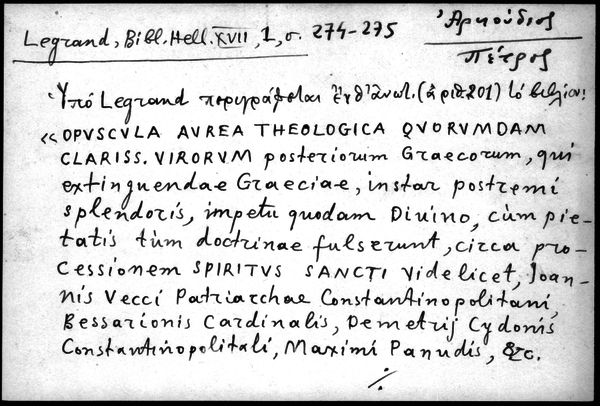 Ἀρκούδιος
Πέτρος
Legrand, Bibl. Hell. XVII, 1, σ. 274-275
Ὑπό Legrand περιγράφεται (ἀριθ. 201) τό βιβλίον:
«OPVSCVLA AVREA THEOLOGICA QVORVMDAM
CLARISS. VIRORVM posteriorum Graecorum, qui
extinguendae Graeciae, instar postremi
splendoris, impetu quodam Diuino, cùm pie-
tatis tùm doctrinae fulserunt, circa pro-
cessionem SPIRITVS SANCTI videlicet, Joan-
nis Vecci Patriarchae Constantinopolitani,
Bessarionis Cardinalis, Demetrij Cydonis
Constantinopolitali, Maximi Panudis, &c.
./.